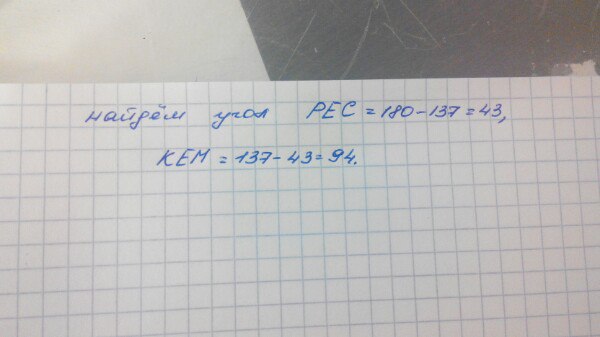 найдём угол PEC = 180 - 137 = 43,
KEM = 137 - 43 = 94.